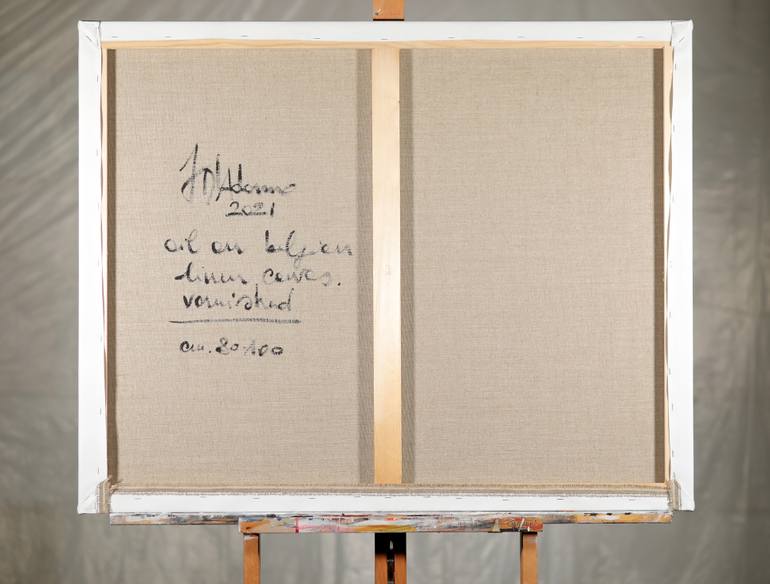 J D'Adamo
2021
oil on belgian
linen canvas.
varnished
cm. 80-100